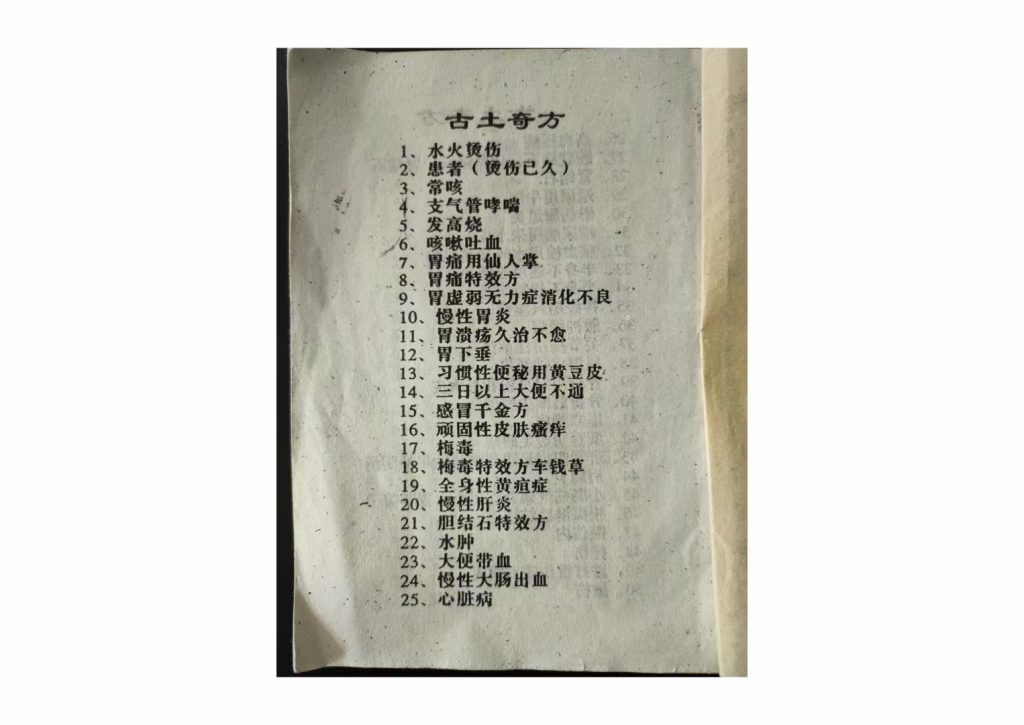 古土奇方
1、水火烫伤
2、患者（烫伤已久）
3、常咳
4、支气管哮喘
5、发高烧
6、咳嗽吐血
7、胃痛用仙人掌
8、胃痛特效方
9、胃虚弱无力症消化不良
10、慢性胃炎
11、胃溃疡久治不愈
12、胃下垂
13、习惯性便秘用黄豆皮
14、三日以上大便不通
15、感冒千金方
16、顽固性皮肤瘙痒
17、梅毒
18、梅毒特效方车钱草
19、全身性黄疸症
20、慢性肝炎
21、胆结石特效方
22、水肿
23、大便带血
24、慢性大肠出血
25、心脏病